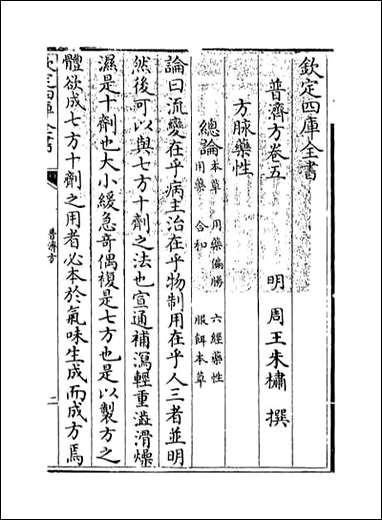 欽定四庫全書
普濟方卷五
明 周王朱橚 撰
方脉藥性
總論 本草 用藥偏勝 六經藥性
用藥 合和 服餌本草
論曰流變在乎病主治在乎物制用在乎人三者並明
然後可以與七方十劑之法也宣通補瀉輕重澁滑燥
濕是十劑也大小緩急奇偶複是七方也是以製方之
體欲成七方十劑之用者必本於氣味生成而成方焉
欽定四庫全書
普濟方